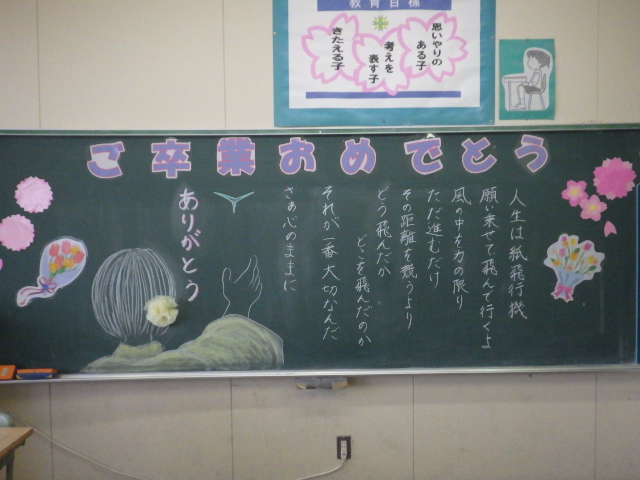 教育目標
思いやりの
ある子
考えを
表す子
きたえる子
ご卒業おめでとう
人生は紙飛行機
願い乗せて飛んで行くよ
風の中を力の限り
ただ進むだけ
その距離を競うより
どう飛んだか
どこを飛んだのか
それが一番大切なんだ
さあ心のままに
ありがとう